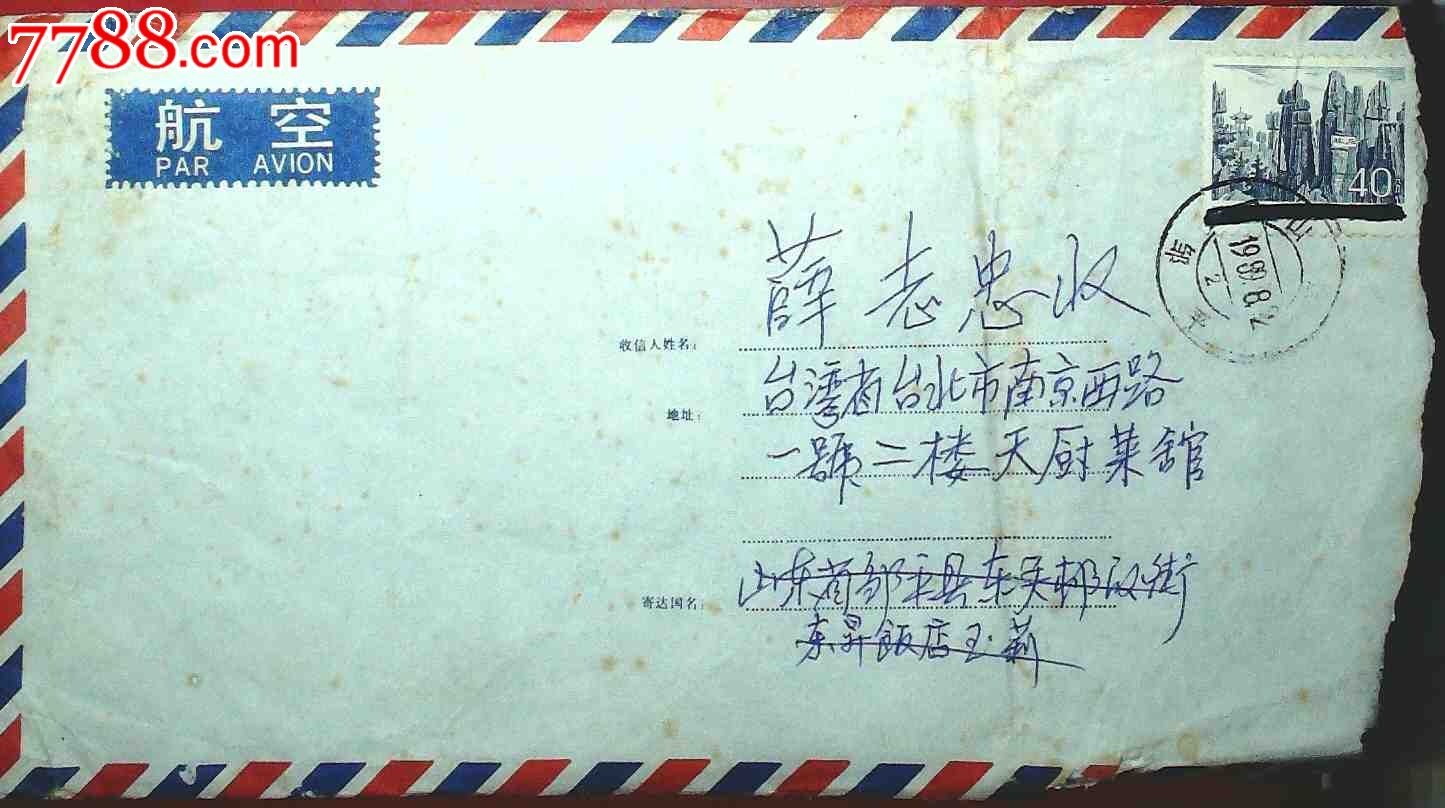 7788.com
航空
PAR AVION
40
1989.8.2
收信人姓名：
薛志忠收
地址：
台灣省台北市南京西路
一號二楼天厨菜舘
寄达国名：
山东省邹平县东关村汉街
东昇飯店玉莉